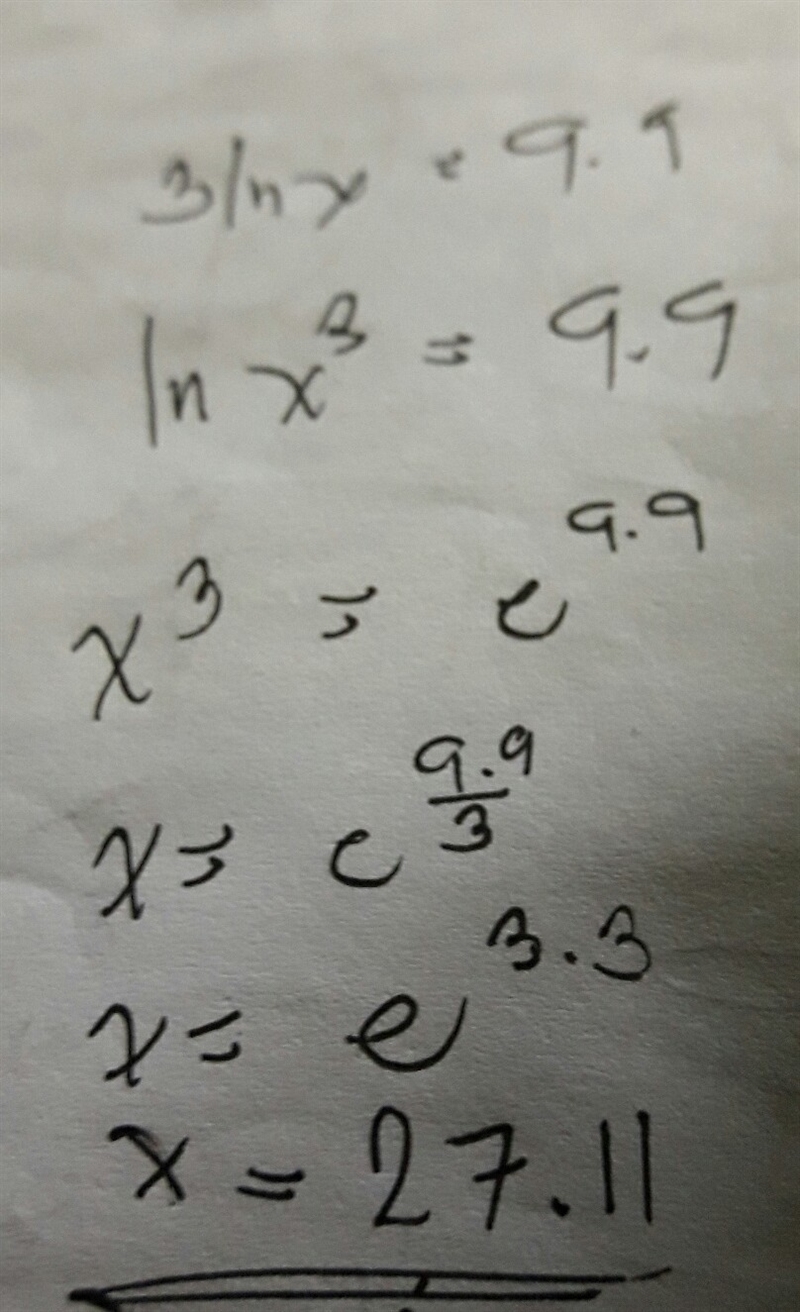 3 ln x = 9.9
ln x³ = 9.9
x³ = e^9.9
x = e^(9.9/3)
x = e^3.3
x = 27.11